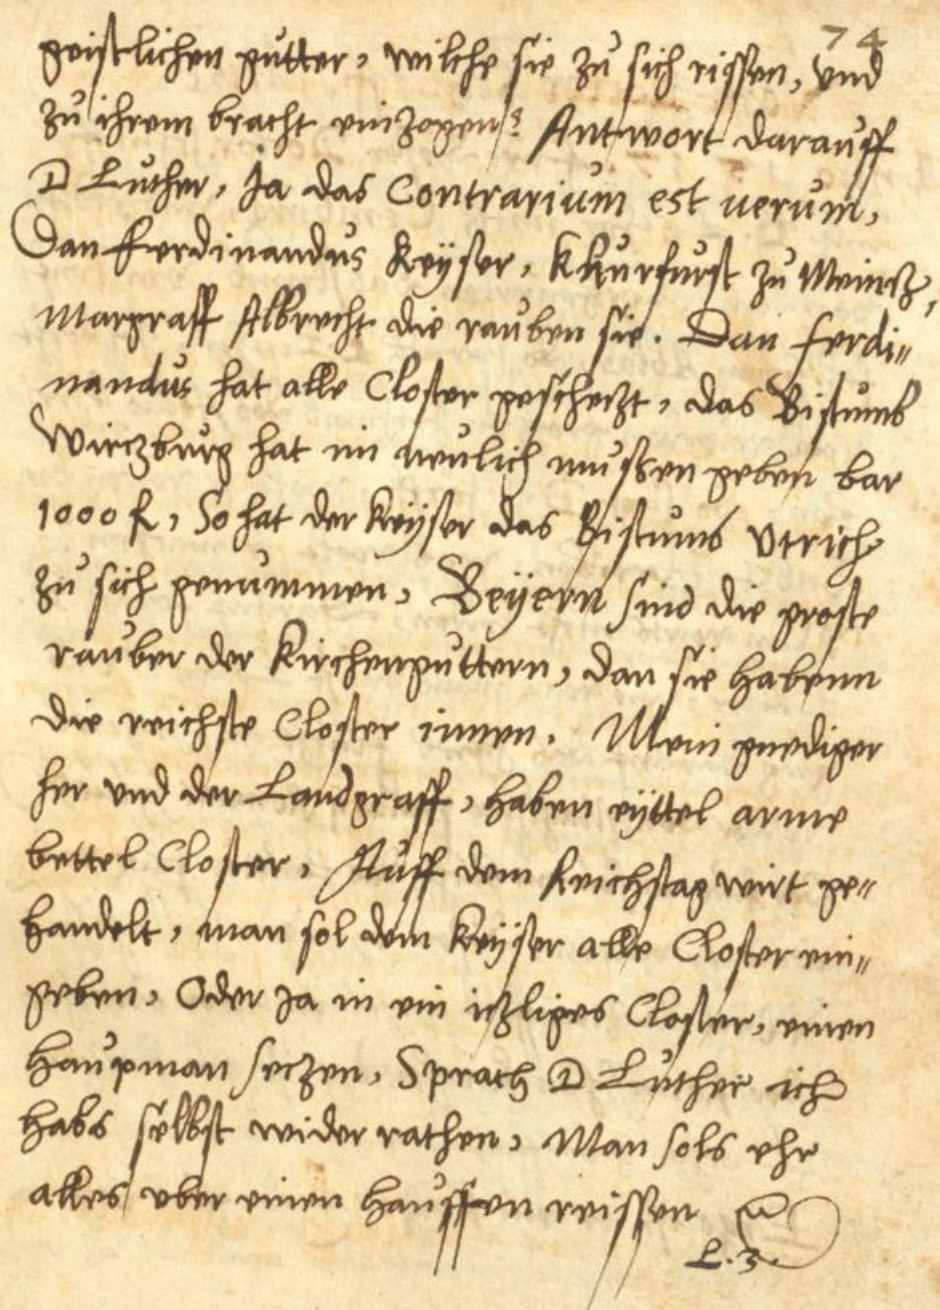 74
geistlichen gutter, wilche sie zu sich rissen, vnd
zu ihrem bracht einzogen? Antwort darauff
D Luther, Ja das Contrarium est uerum,
Dan Ferdinandus Keyser, Khurfurst zu Meincz,
Margraff Albrecht die rauben sie. Dan Ferdi„
nandus hat alle Closter geschetzt, das Bistumb
Wirczburg hat im neulich mussen geben bar
1000 f., So hat der Keyser das Bistumb Vtrich
zu sich genummen, Beyern sind die groste
rauber der Kirchenguttern, dan sie habenn
die reichste Closter innen. Mein gnediger
her vnd der Landgraff, haben eyttel arme
bettel Closter, Auff dem Reichstag wirt ge„
handelt, man sol dem Keyser alle Closter ein„
geben, Oder Ja in ein iczliges Closter, einen
Haupman seczen, Sprach D Luther ich
habs selbst wider rathen, Man sols ehr
alles vber einen hauffen reissen
L. 3.